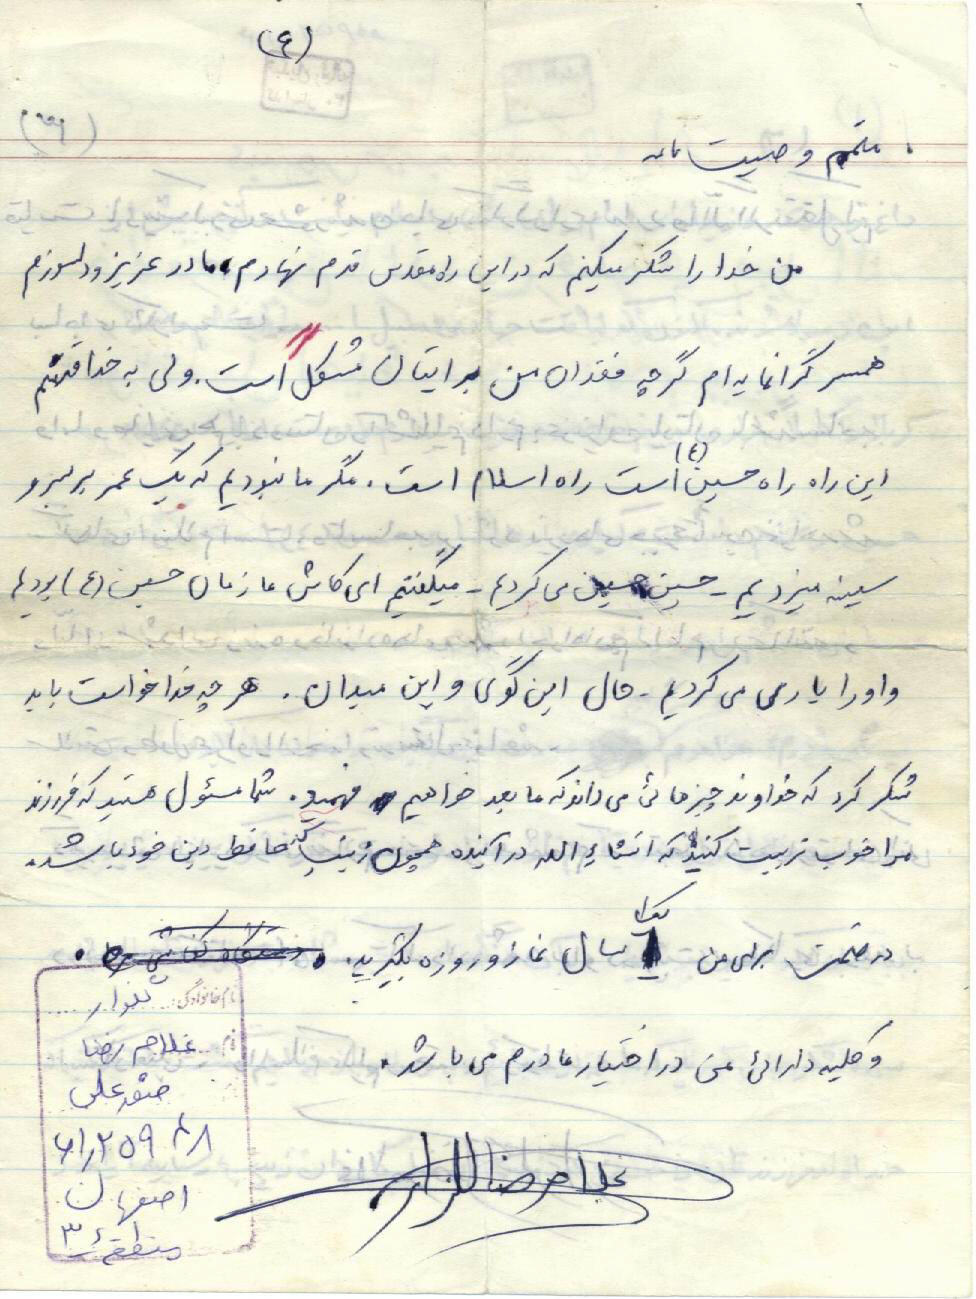 (۴)
متمم وصیت نامه
من خدا را شکر میکنم که در این راه مقدس قدم نهادم، مادر عزیز و دلسوزم
همسر گرانمایه ام گرچه فقدان من برایتان مشکل است. ولی به خدا قسم
این راه راه حسین (ع) است راه اسلام است. مگر ما نبودیم که یک عمر بر سر و
سینه میزدیم - حسین حسین می کردیم - میگفتیم ای کاش ما زمان حسین (ع) بودیم
و او را یاری می کردیم - حال این گوی و این میدان. هر چه خدا خواست باید
شکر کرد که خداوند چیزهائی می داند که ما بعد خواهیم فهمید. شما مسئول هستید که فرزند
مرا خوب تربیت کنید که انشاء الله در آینده همچون زینب حافظ دین خود باشد.
در ضمن برای من یک سال نماز و روزه بگیرید.
و کلیه دارائی من در اختیار مادرم می باشد.
نام خانوادگی:
نام غلامرضا
صفدر علی
اصفهان
منطقه ۳
غلامرضا